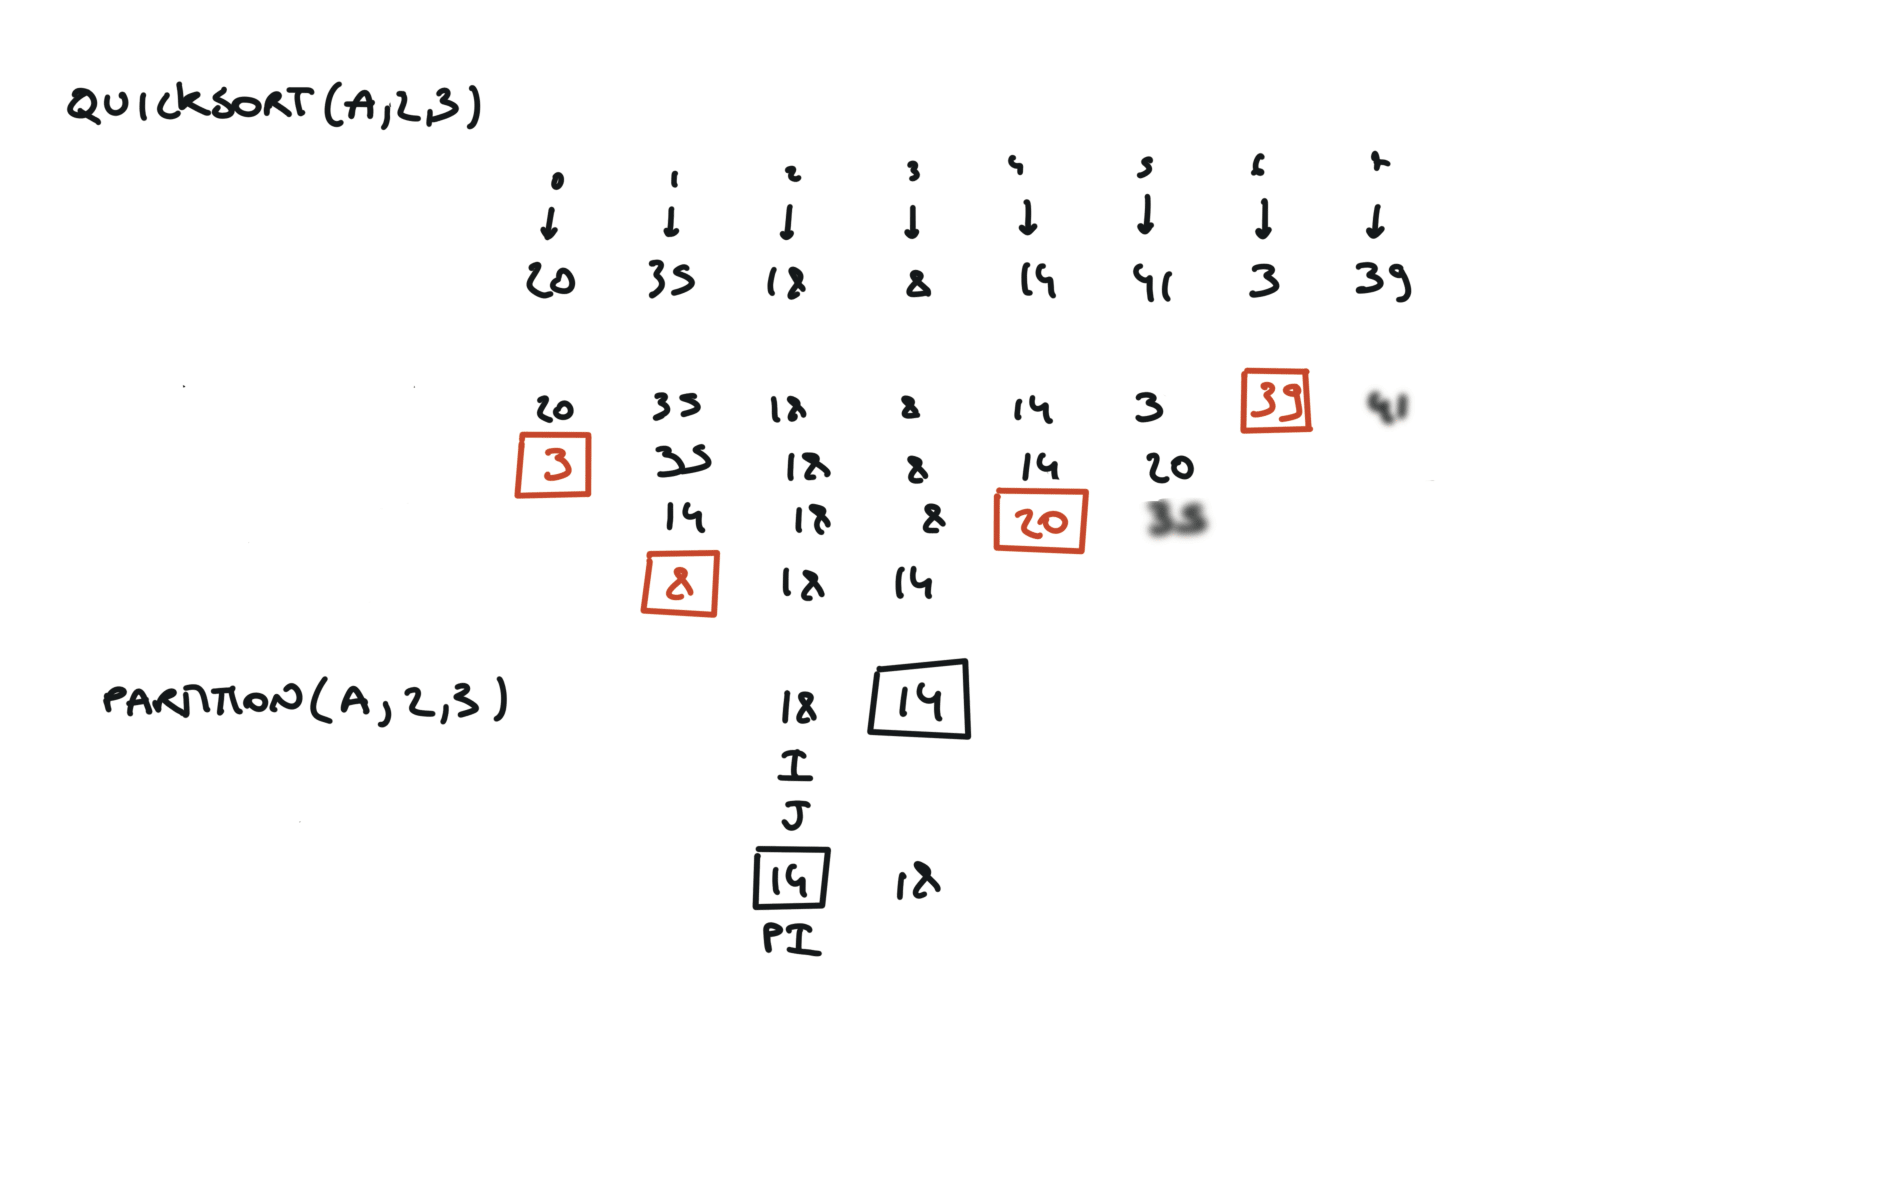 QUICKSORT(A,2,3)
0 1 2 3 4 5 6 7
20 35 18 8 14 41 3 39
20 35 18 8 14 3 39 41
3 35 18 8 14 20
14 18 8 20 35
8 18 14
PARTITION(A,2,3) 18 14
I
J
14 18
PI